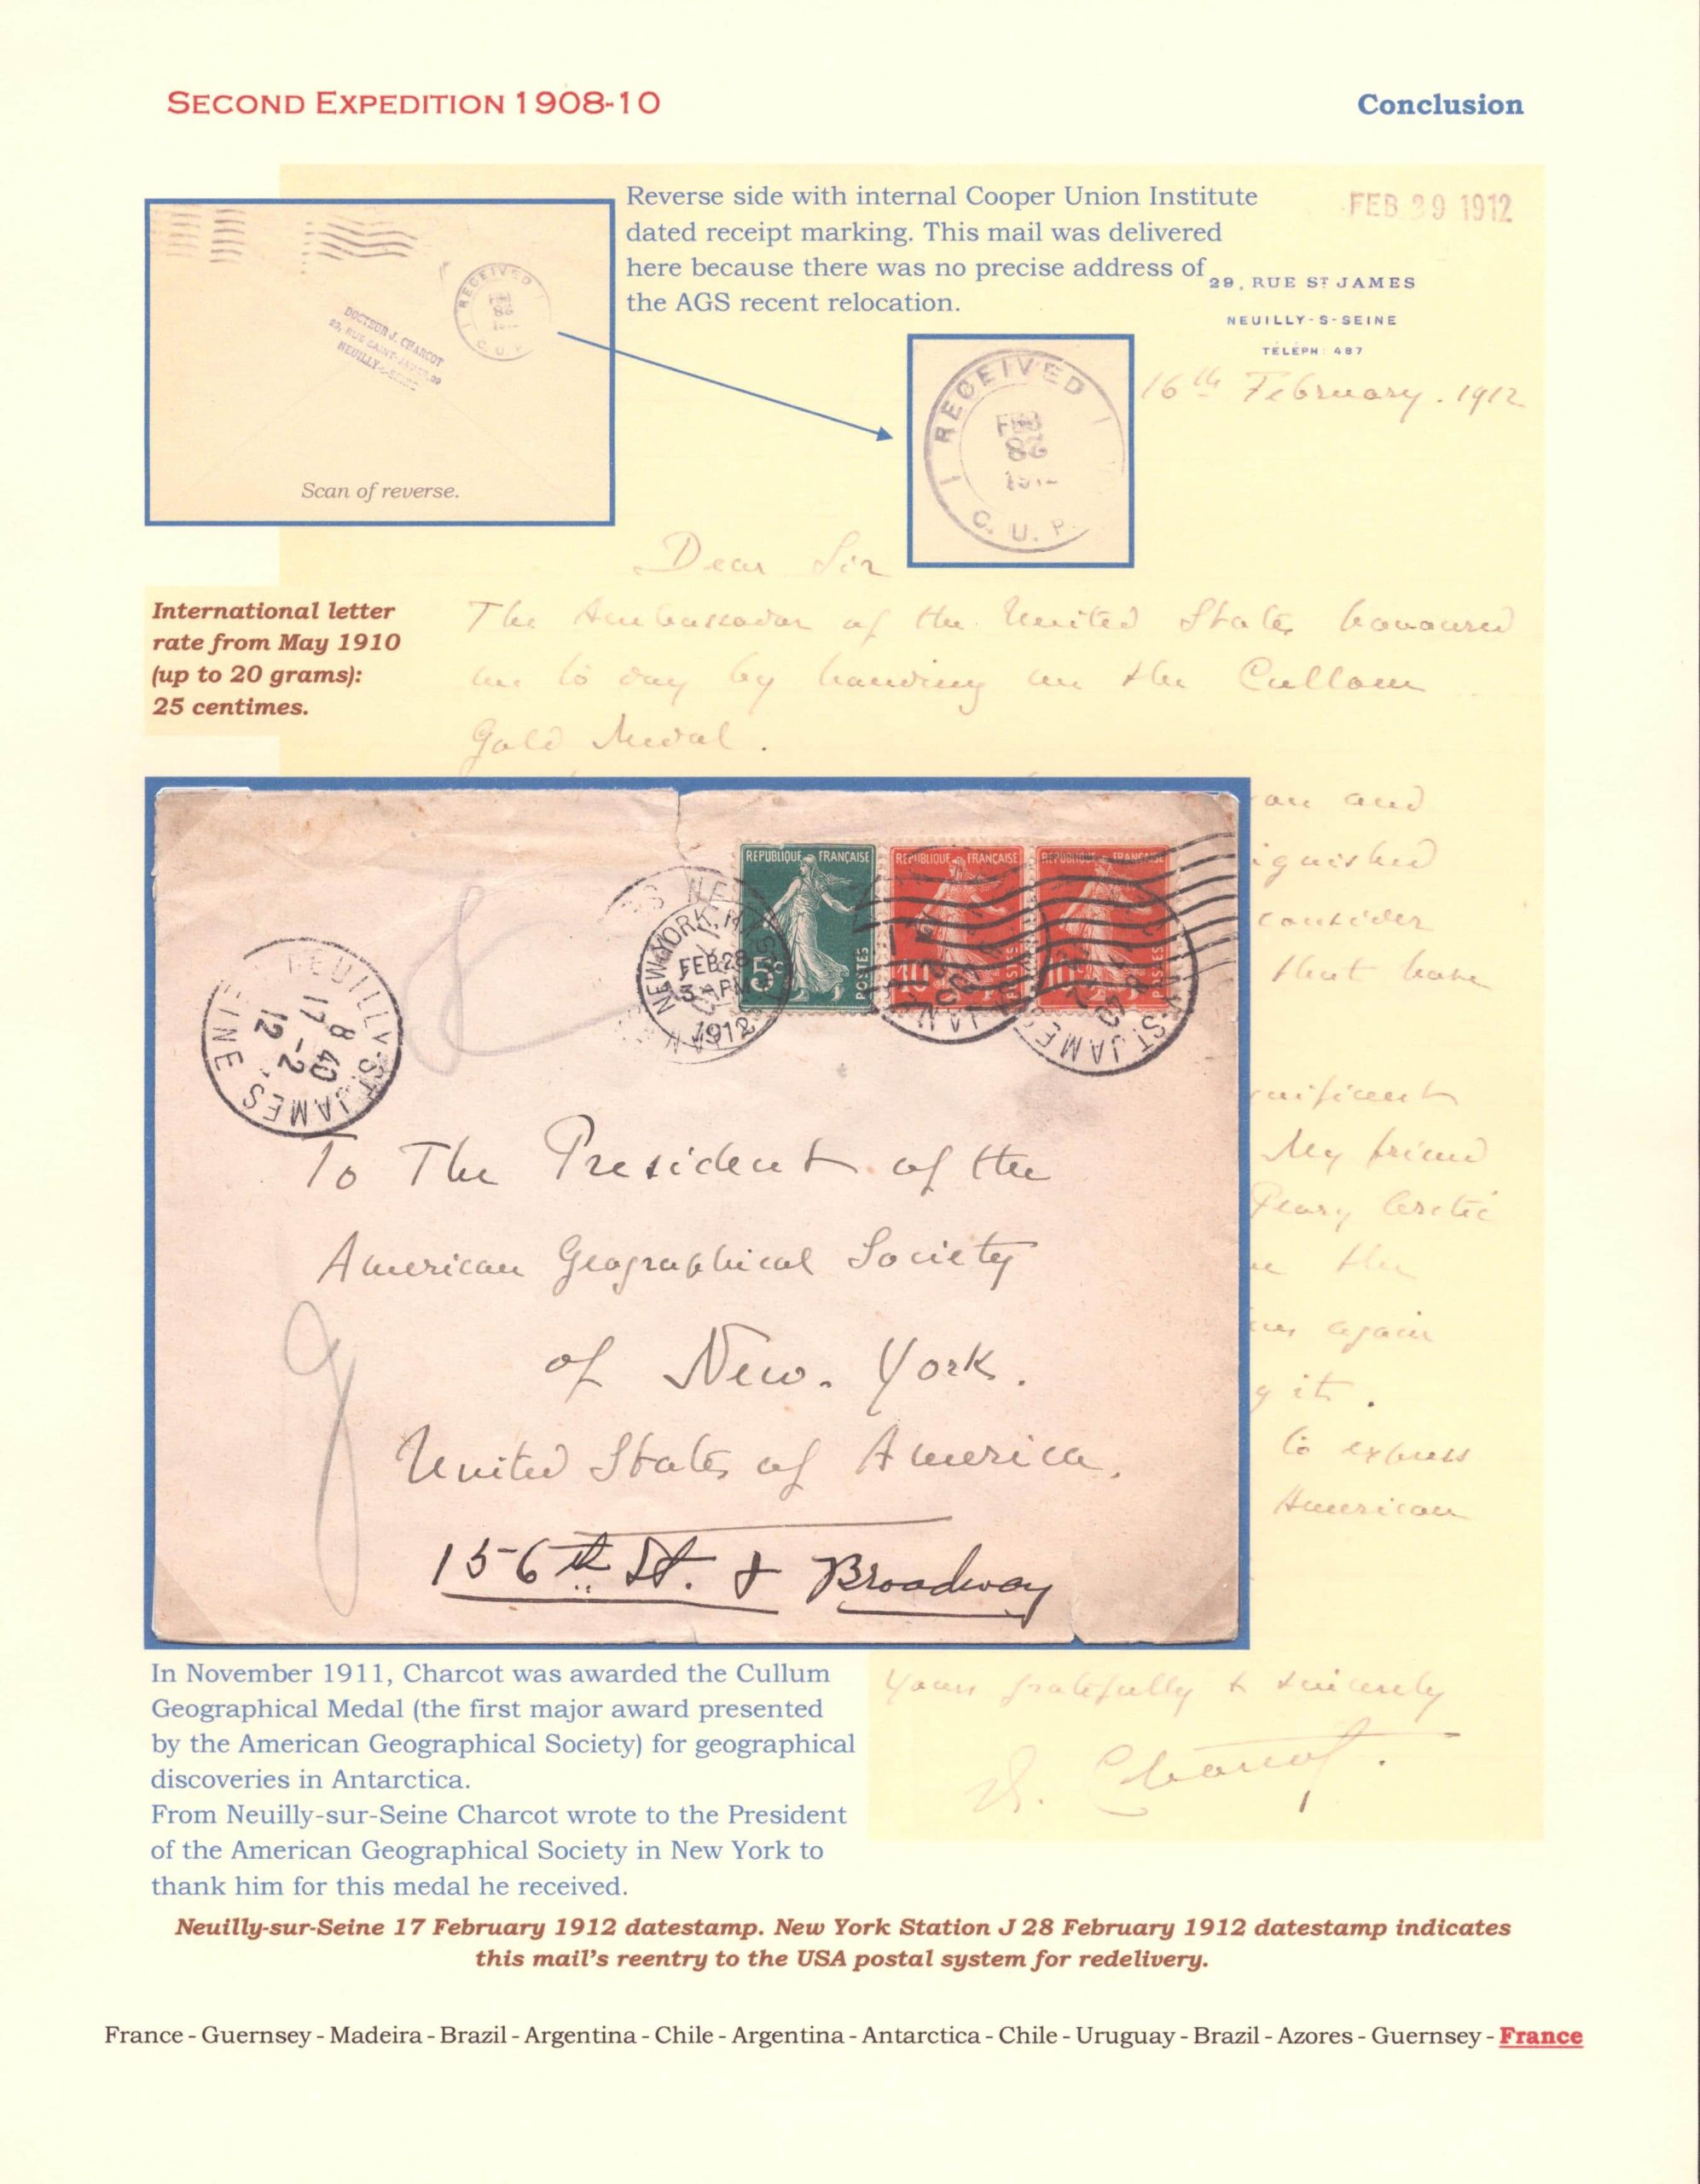 SECOND EXPEDITION 1908-10
Conclusion
Reverse side with internal Cooper Union Institute
dated receipt marking. This mail was delivered
here because there was no precise address of
the AGS recent relocation.
FEB 29 1912
29, RUE ST JAMES
NEUILLY-S-SEINE
TÉLÉPH: 487
16th February. 1912
RECEIVED
FEB
1912
C. U. P.
DOCTEUR J. CHARCOT
29, RUE SAINT-JAMES, 29
NEUILLY-S-SEINE
Scan of reverse.
RECEIVED
FEB
C. U. P.
Dear Sir
International letter
rate from May 1910
(up to 20 grams):
25 centimes.
The Ambassador of the United States honoured
me to day by handing me the Cullom
Gold Medal.
and
consider
that have
My friend
Peary Arctic
the
again
it.
to express
American
REPUBLIQUE FRANÇAISE
5c
POSTES
REPUBLIQUE FRANÇAISE
10
POSTES
REPUBLIQUE FRANÇAISE
10
POSTES
NEW YORK, N.Y.
FEB 28
3-PM
1912
NEUILLY-ST JAMES SEINE
8 40
17 -2
12
ST JAMES
To The President of the
American Geographical Society
of New. York.
United States of America.
156th St. & Broadway
In November 1911, Charcot was awarded the Cullum
Geographical Medal (the first major award presented
by the American Geographical Society) for geographical
discoveries in Antarctica.
From Neuilly-sur-Seine Charcot wrote to the President
of the American Geographical Society in New York to
thank him for this medal he received.
Yours gratefully & sincerely
J. Charcot.
Neuilly-sur-Seine 17 February 1912 datestamp. New York Station J 28 February 1912 datestamp indicates
this mail's reentry to the USA postal system for redelivery.
France - Guernsey - Madeira - Brazil - Argentina - Chile - Argentina - Antarctica - Chile - Uruguay - Brazil - Azores - Guernsey - France